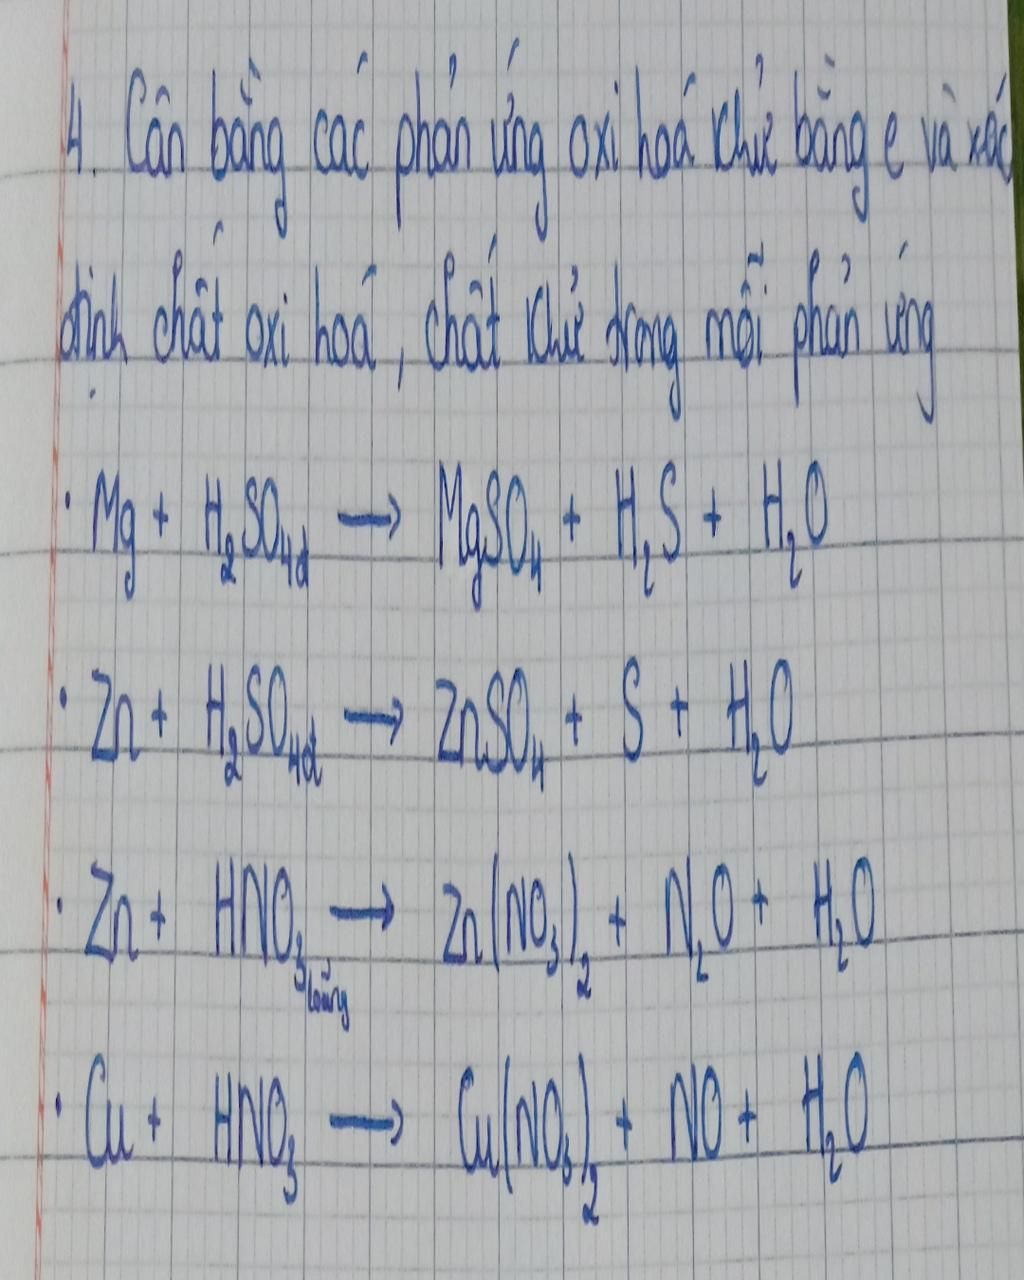 4. Cân bằng các phản ứng oxi hoá khử bằng e và xác
định chất oxi hoá, chất khử trong mỗi phản ứng
· Mg + H₂SO₄đ → MgSO₄ + H₂S + H₂O
· Zn + H₂SO₄đ → ZnSO₄ + S + H₂O
· Zn + HNO₃ loãng → Zn(NO₃)₂ + N₂O + H₂O
· Cu + HNO₃ → Cu(NO₃)₂ + NO + H₂O